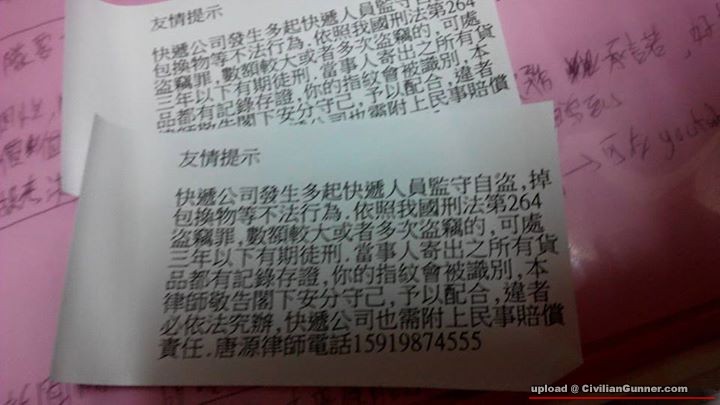 友情提示
快遞公司發生多起快遞人員監守自
包換物等不法行為.依照我國刑法第264
盜竊罪,數額較大或者多次盜竊的,可處
三年以下有期徒刑.當事人寄出之所有貨
品都有記錄存證,你的指紋會被識別,本
律師敬告閣下安分守己,予以配合,違者
公司也需附上民事賠償
友情提示
快遞公司發生多起快遞人員監守自盜,掉
包換物等不法行為.依照我國刑法第264
盜竊罪,數額較大或者多次盜竊的,可處
三年以下有期徒刑.當事人寄出之所有貨
品都有記錄存證,你的指紋會被識別,本
律師敬告閣下安分守己,予以配合,違者
必依法究辦,快遞公司也需附上民事賠償
責任.唐源律師電話15919874555
upload @ CivilianGunner.com